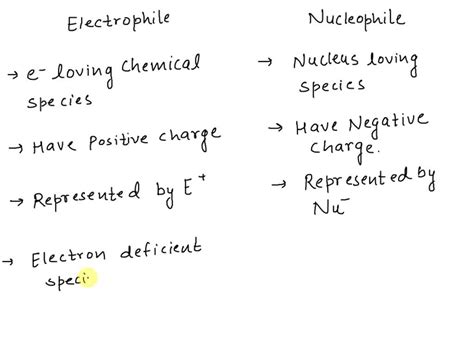 Electrophile
→ e⁻ loving chemical
species
→ Have Positive charge
→ Represented by E⁺
→ Electron deficient
speci
Nucleophile
→ Nucleus loving
species
→ Have Negative
charge.
→ Represented by
Nu⁻